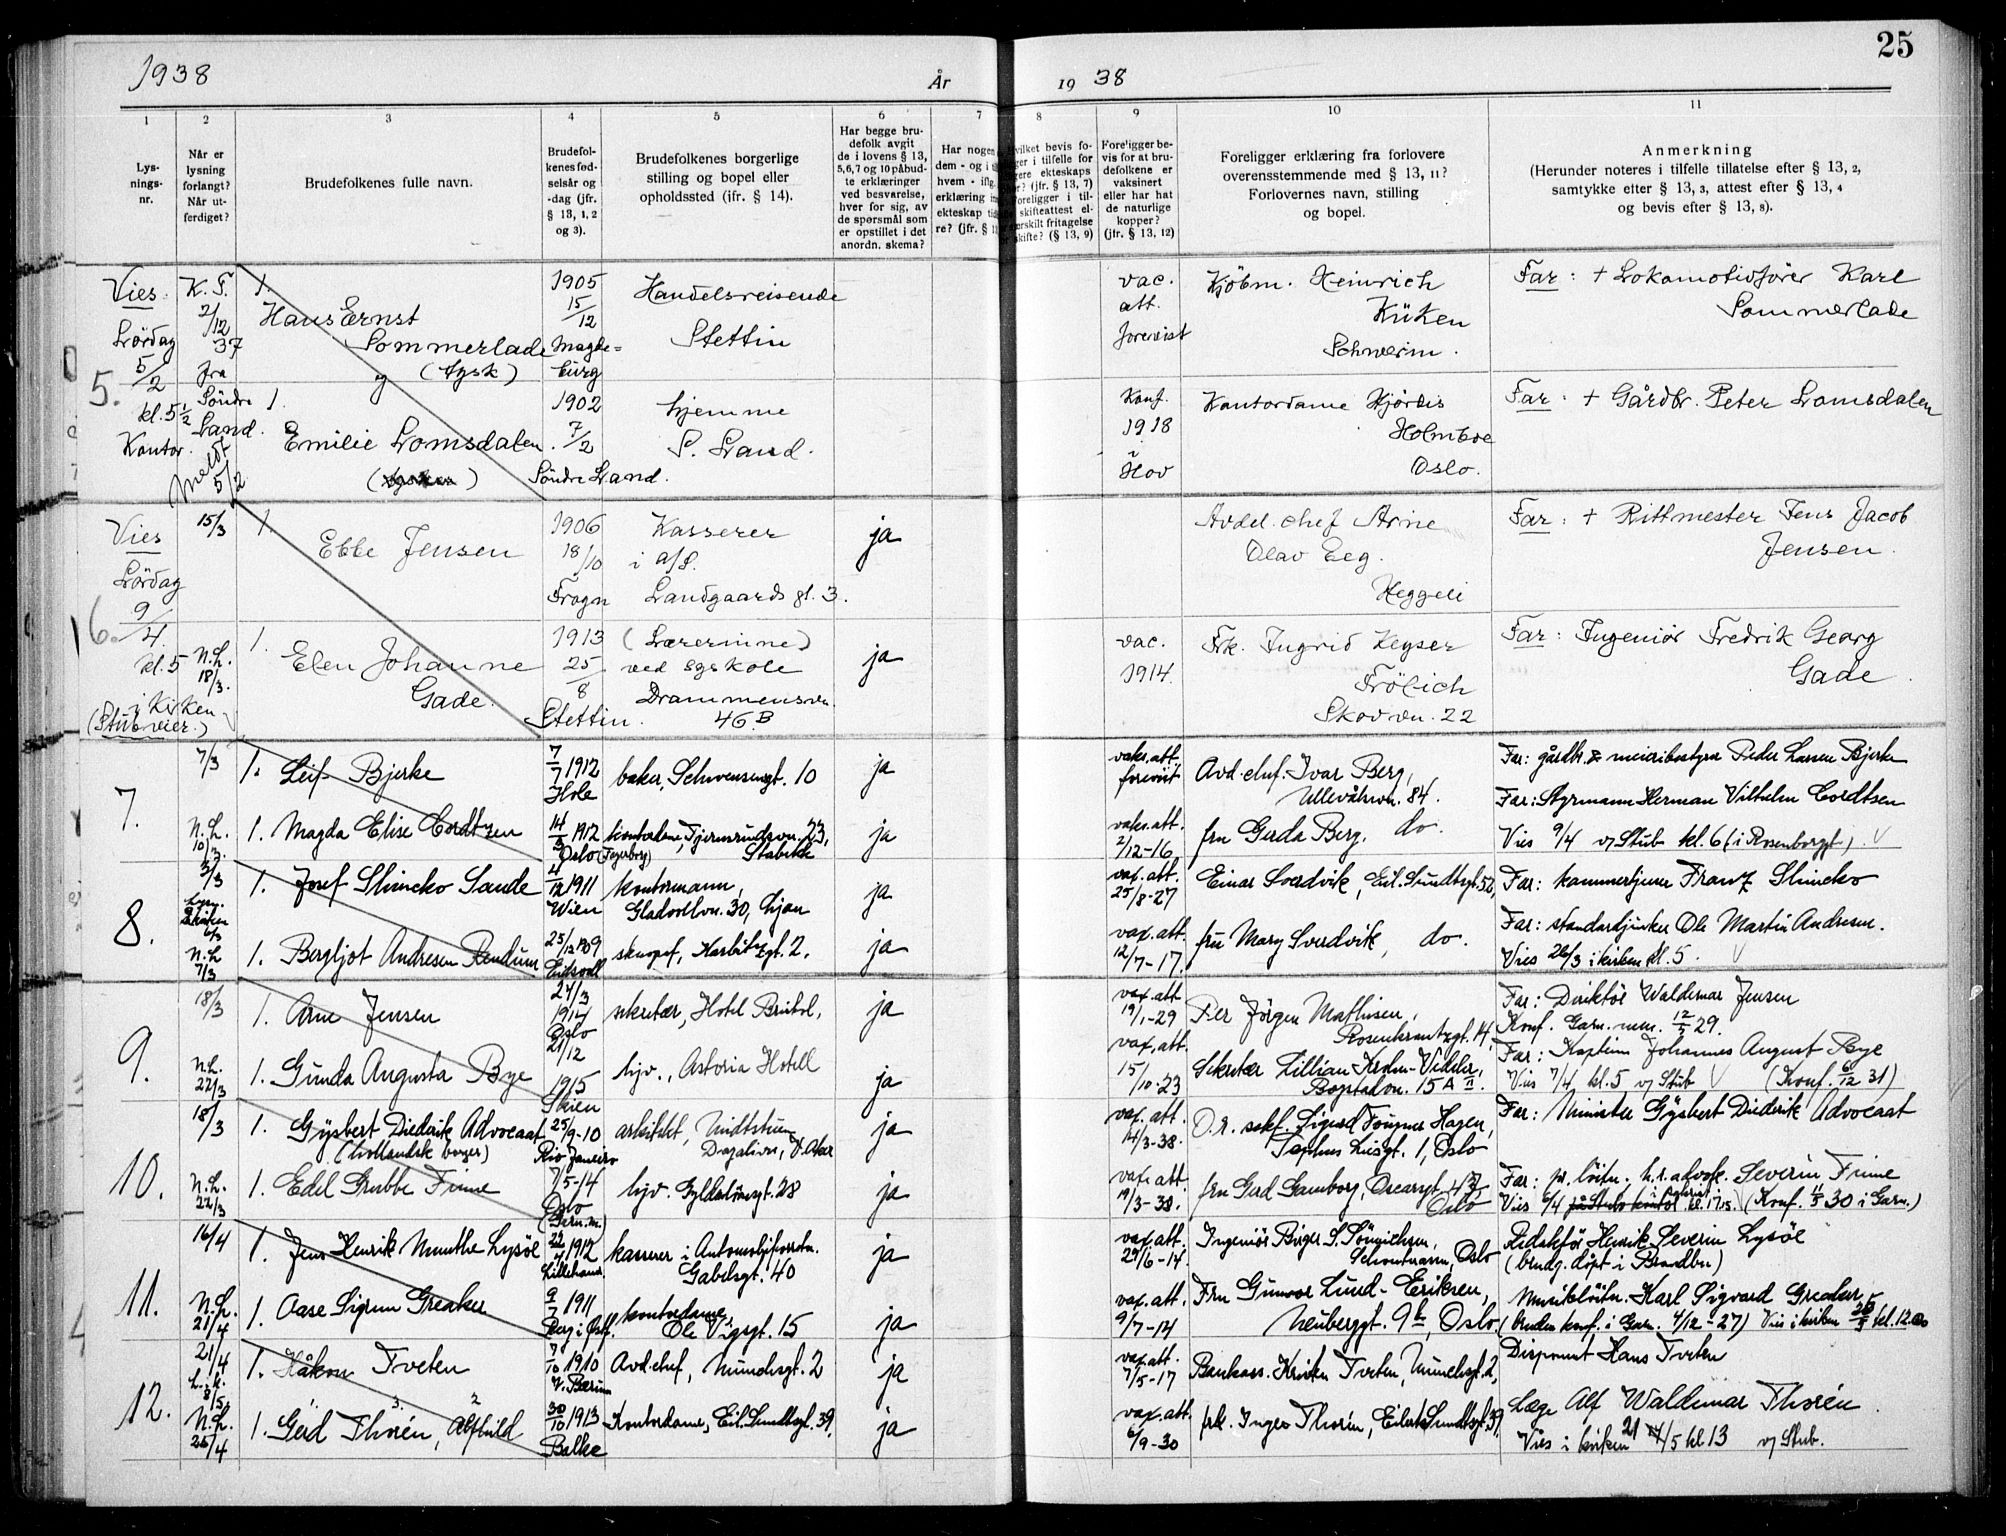 25
1938
År
19 38
1
2
3
4
5
6
7
8
9
10
11
Lys-
nings-
nr.
Når er
lysning
forlangt?
Når ut-
ferdiget?
Brudefolkenes fulle navn.
Brudefol-
kenes fød-
selsår og
-dag (jfr.
§ 13, 1, 2
og 3).
Brudefolkenes borgerlige
stilling og bopel eller
opholdssted (jfr. § 14).
Har begge bru-
defolk avgit
de i lovens § 13,
5,6,7 og 10 påbud-
te erklæringer
ved besvarelse,
hver for sig, av
de spørsmål som
er opstillet i det
anordn. skema?
Har nogen
dem - og i
hvem - ifig.
erklæring
ekteskap
re? (jfr. §
vilket bevis fo-
ger i tilfelle for
ere ekteskaps
? (jfr. § 13, 7)
oreligger i til-
skifteattest el-
erskilt fritagelse
skifte? (§ 13, 9)
Foreligger be-
vis for at bru-
defolkene er
vaksinert
eller har hat
de naturlige
kopper?
(jfr. § 13, 12)
Foreligger erklæring fra forlovere
overensstemmende med § 13, 11?
Forlovernes navn, stilling
og bopel.
Anmerkning
(Herunder noteres i tilfelle tillatelse efter § 13, 2,
samtykke etter § 13, 3, attest efter § 13, 4
og bevis efter § 13, 8).
5.
Vies
Lördag
5/2
kl. 5 1/2
Kontor.
K. F.
2/12
37
fra
Söndre
Land.
Meldt
5/2
1.
Hans Ernst
Sommerlade
og (tysk)
1905
15/12
Magde=
burg
Handelsreisende
Stettin
vac.
att.
forevist
Kjöbm. Heinrich
Küken
Schwerin.
Far: + Lokomotivförer Karl
Sommerlade
1.
Emilie Lomsdalen
1902
7/2
Söndre Land.
hjemme
S. Land.
Konf.
1918
i
Hov
Kontordame Hjördis
Holmboe
Oslo.
Far: + Gårdbr. Peter Lomsdalen
6.
Vies
Lördag
9/4
kl. 5
i kirken
(Stub vier.)
15/3
1.
Ebbe Jensen
1906
18/10
Frogn
Kasserer
i A/S.
Landgaards pl. 3.
ja
Avdel. chef Arne
Olav Eeg.
Heggeli
Far: + Rittmester Jens Jacob
Jensen.
N.L.
18/3.
1.
Elen Johanne
Gade.
1913
25/8
Stettin.
(Lærerinne)
ved sykole
Drammensvn.
46 B
ja
vac.
1914
Frk. Ingrid Keyser
Frölich
Skovvn. 22
Far: Ingeniör Fredrik Georg
Gade.
7.
7/3
1. Leif Bjerke
7/7 1912
Hole
baker, Schwensensgt. 10
ja
vaks. att.
forevist
Avd. chef. Ivar Berg,
Ullevålsvn. 84.
Far: gårdbr. & meieribestyrer Peder Larsen Bjerke
N.L.
10/3.
1. Magda Elise Cordtzen
14/3 1912
Oslo (Fagerborg)
kontordame, Fjernsrudsvn. 23,
Stabekk
ja
vaks. att.
2/12-16
fru Gerda Berg. do.
Far: Styrmann Herman Vilhelm Cordtsen
Vies 9/4 v/ Stub kl. 6 (i Rosenborggt.)
8.
3/3
1. Josef Slincko Sande
4/12 1911
Wien
kontormann,
Gladvollvn. 30, Ljan
ja
vax. att.
25/8-27
Einar Sverdvik, Eil. Sundtsgt. 52,
Far: kammertjener Franz Slincko
N.L.
7/3
1. Bergljot Andresen Rendum
25/12 1909
Eidsvoll
ja
vax. att.
12/7-17.
fru Mary Sverdvik, do.
Far: standardjunker Ole Martin Andresen.
Vies 26/3 i kirken kl. 5.
9.
18/3
1. Arne Jensen
24/3
1914
Oslo
sekretær, Hotel Bristol,
ja
vax. att
19/1-29
Per Jörgen Mathisen,
Rosenkrantzgt. 14,
Far: Direktör Waldemar Jensen
Konf. Garn. men. 12/5 29.
N.L.
22/3
1. Gunda Augusta Bye
21/12
1915
Skien
hjv., Astoria Hotell
ja
vax. att.
15/10-23
Sekretær Lillian Krohn-
15 A II.
Far: Kaptein Johannes August Bye
Vies 7/4 kl. 5 v/ Stub (Konf. 6/12 31)
10.
18/3
1. Gijsbert Diederik Advocaat
(hollandsk borger)
25/9-10
Rio Janeiro
arkitekt,
V. Aker
ja
vax. att.
14/3-38.
O.r. sakf. Sigurd Hagen,
Sophus Liesgt. 1, Oslo
Far: Minister Gijsbert Diederik Advocaat
N.L.
22/3
1. Edel Grubbe Finne
7/5-14
Oslo
(Garn. m.)
hjv. Gyldenlövesgt. 28
ja
vax. att
19/3-38.
fru Gerd Gamborg, Oscarsgt. 43,
Oslo
Far: pr. löitn. h.r. advok. Severin Finne
Vies 6/4 på Stubs kontor kl. 17.15. (Konf. 1/5 30 i Garn.)
11.
16/4
1. Jens Henrik Munthe Lysöe
1912
Lillehamr.
kasserer i Automobilforretn.
Gabelsgt. 40
ja
vax. att
29/6-14
Ingeniör Birger S. Sönnichsen,
Oslo
Redaktör Henrik Severin Lysöe
(brudg. döpt i Brandbu)
N.L.
21/4
1. Aase Sigrun Greaker
9/7 1911
Berg i Östf.
kontordame
Ole Vigsgt. 15
ja
vax. att.
9/7-14
Fru Gunvor Lund-Eriksen,
Neuberggt. 9 b, Oslo.
Musiklöitn. Karl Sigvard Greaker
(bruden konf. i Garn. 4/12-27) Vies i kirken kl. 12.00
12.
21/4
L.k.
3/5.
1. Håkon Tveten
7/10 1910
V. Bærum
Avd. chef, Munchsgt. 2
ja
vax. att.
7/5-17
Bankass. Kristen Tveten, Munchsgt. 2,
Disponent Hans Tveten
N.L.
25/4
1. Gerd Thorén, Alfhild
30/10 1913
Balke
Kontordame, Eil. Sundtsgt. 39,
ja
vax. att.
6/9-30
frk. Inger Thorén, Eilert Sundtsgt. 39,
Læge Alf Waldemar Thorén
Vies i kirken 21/5 kl 13 v/ Stub.